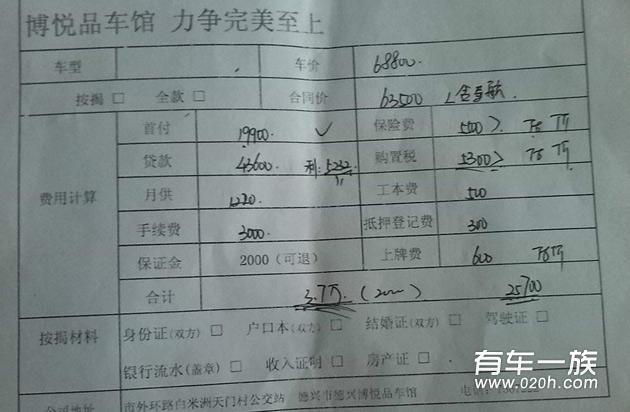 博悦品车馆 力争完美至上
车型 车价 68800.
按揭 □ 全款 □ 合同价 63500
费用计算
首付 19900. 保险费 5000
贷款 43600 利: 5232 购置税 5300
月供 1220. 工本费 500
手续费 3000 抵押登记费 300
保证金 2000 (可退) 上牌费 600
合计 3.7万. 25700
按揭材料
身份证(双方) □ 户口本(双方) □ 结婚证(双方) □ 驾驶证 □
银行流水(盖章) □ 收入证明 □ 房产证 □
公司地址 市外环路白米洲天门村公交站 德兴市德兴博悦品车馆 电话:
有车一族
www.020h.com